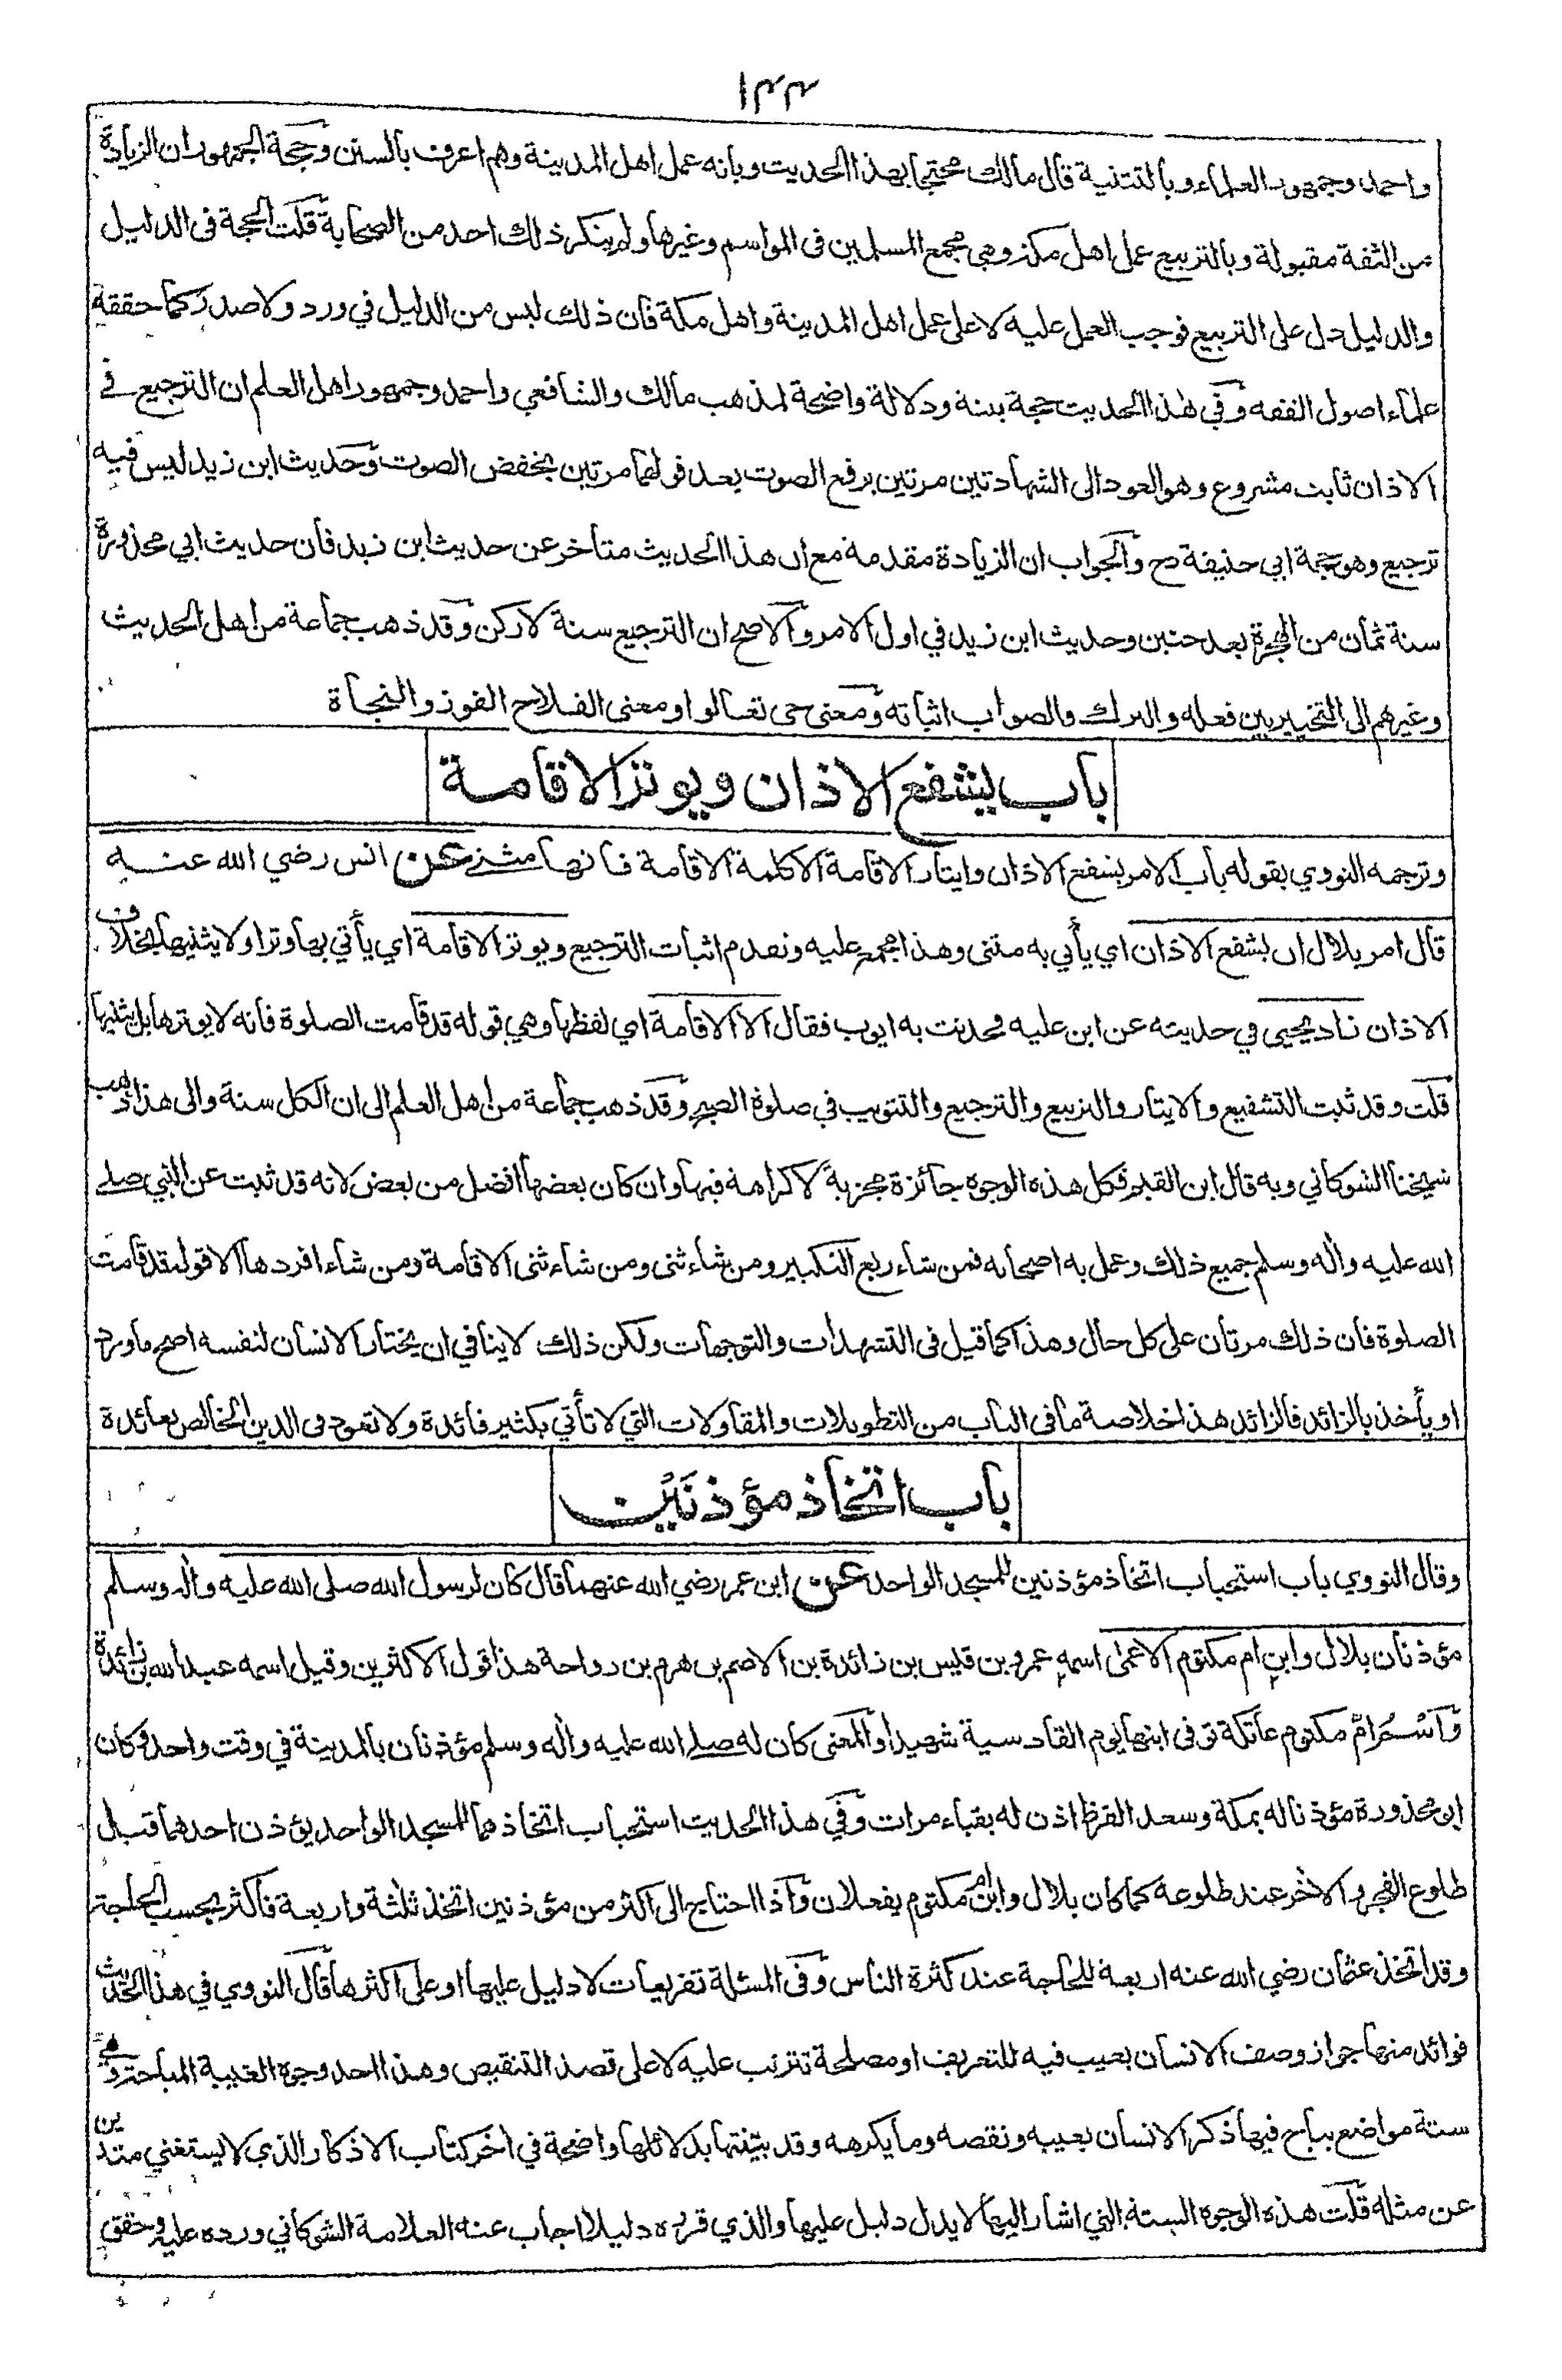 ١٢٢
واحمد وجمهور العلماء وبالتثنية قال مالك محتجا بهذا الحديث وبانه عمل اهل المدينة وهم اعرف بالسنن وحجة الجمهور ان الزيادة
من الثقة مقبولة وبالتربيع عمل اهل مكة وهي مجمع المسلمين في المواسم وغيرها ولم ينكر ذلك احد من الصحابة قلت الحجة في الدليل
والدليل دل على التربيع فوجب العمل عليه لا على عمل اهل المدينة واهل مكة فان ذلك ليس من الدليل في ورد ولا صدر كما حققه
علماء اصول الفقه وفي هذا الحديث حجة بينة ودلالة واضحة لمذهب مالك والشافعي واحمد وجمهور اهل العلم ان الترجيع في
الاذان ثابت مشروع وهو العود الى الشهادتين مرتين برفع الصوت بعد قولهما مرتين بخفض الصوت وحديث ابن زيد ليس فيه
ترجيع وهو حجة ابي حنيفة رح والجواب ان الزيادة مقدمة مع ان هذا الحديث متاخر عن حديث ابن زيد فان حديث ابي محذورة
سنة ثمان من الهجرة بعد حنين وحديث ابن زيد في اول الامر والاصح ان الترجيع سنة لا ركن وقد ذهب جماعة من اهل الحديث
وغيرهم الى التخيير بين فعله والترك والصواب اثباته ومعنى حي تعالوا ومعنى الفلاح الفوز والنجاة
باب يشفع الاذان ويوتر الاقامة
وترجمه النووي بقوله باب الامر بشفع الاذان وايتار الاقامة الا كلمة الاقامة فانها مثنى عن انس رضي الله عنه
قال امر بلال ان يشفع الاذان اي يأتي به مثنى وهذا مجمع عليه وتقدم اثبات الترجيع ويوتر الاقامة اي يأتي بها وترا ولا يثنيها بخلاف
الاذان زاد يحيى في حديثه عن ابن علية فحدثت به ايوب فقال الا الاقامة اي لفظها وهي قوله قد قامت الصلوة فانه لا يوترها بل يثنيها
قلت وقد ثبت التشفيع والايتار والتربيع والترجيع والتثويب في صلوة الصبح وقد ذهب جماعة من اهل العلم الى ان الكل سنة والى هذا ذهب
شيخنا الشوكاني وبه قال ابن القيم فكل هذه الوجوه جائزة مجزية لا كراهة فيها وان كان بعضها افضل من بعض لانه قد ثبت عن النبي صلى
الله عليه واله وسلم جميع ذلك وعمل به اصحابه فمن شاء ربع التكبير ومن شاء ثنى ومن شاء ثنى الاقامة ومن شاء افردها الا قوله قد قامت
الصلوة فان ذلك مرتان على كل حال وهذا كما قيل في التشهدات والتوجهات ولكن ذلك لا ينافي ان يختار الانسان لنفسه اصح ما ورد
او يأخذ بالزائد فالزائد هذا خلاصة ما في الباب من التطويلات والمقاولات التي لا تأتي بكثير فائدة ولا تعود في الدين الخالص بعائدة
باب اتخاذ مؤذنَيْن
وقال النووي باب استحباب اتخاذ مؤذنين للمسجد الواحد عن ابن عمر رضي الله عنهما قال كان لرسول الله صلى الله عليه واله وسلم
مؤذنان بلال وابن ام مكتوم الاعمى اسمه عمرو بن قيس بن زائدة بن الاصم بن هرم بن رواحة هذا قول الاكثرين وقيل اسمه عبد الله بن زائدة
واسم ام مكتوم عاتكة توفى ابنها يوم القادسية شهيدا والمعنى كان له صلى الله عليه واله وسلم مؤذنان بالمدينة في وقت واحد وكان
ابو محذورة مؤذنا له بمكة وسعد القرظ اذن له بقباء مرات وفي هذا الحديث استحباب اتخاذهما للمسجد الواحد يؤذن احدهما قبل
طلوع الفجر والاخر عند طلوعه كما كان بلال وابن ام مكتوم يفعلان واذا احتاج الى اكثر من مؤذنين اتخذ ثلثة واربعة فاكثر بحسب الحاجة
وقد اتخذ عثمان رضي الله عنه اربعة للحاجة عند كثرة الناس وفي المسئلة تفريعات لا دليل عليها او على اكثرها قال النووي في هذا الحديث
فوائد منها جواز وصف الانسان بعيب فيه للتعريف او مصلحة تترتب عليه لا على قصد التنقيص وهذا احد وجوه الغيبة المباحة وهي
ستة مواضع يباح فيها ذكر الانسان بعيبه ونقصه وما يكرهه وقد بينتها بدلائلها واضحة في اخر كتاب الاذكار الذي لا يستغني متدين
عن مثله قلت هذه الوجوه الستة التي اشار اليها لا يدل دليل عليها والذي قرره دليلا اجاب عنه العلامة الشوكاني ورده عليه وحقق